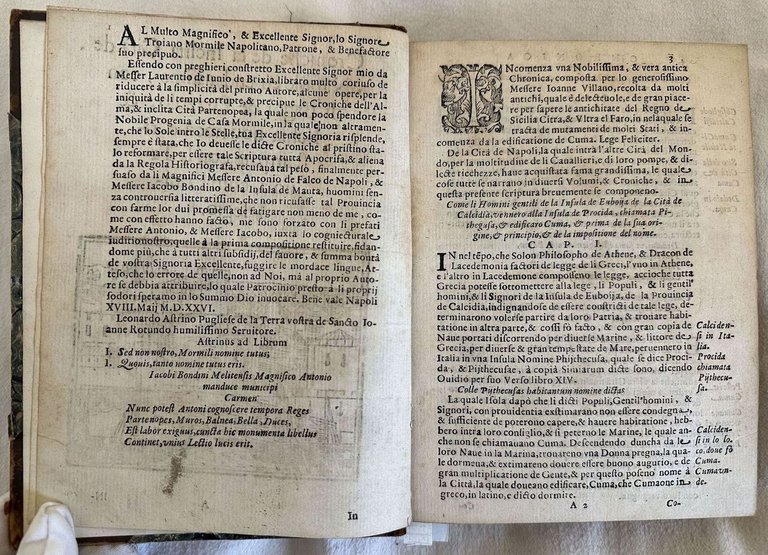 AL Multo Magnifico, & Excellente Signor, lo Signore
Troiano Mormile Napolitano, Patrone, & Benefactore
suo precipuo.
Essendo con preghieri, constretto Excellente Signor mio da
Messer Laurentio de Iunio de Brixia, libraro multo coriuso de
riducere á la simplicità del primo Autore, alcune opere, per la
iniquità de li tempi corrupte, & precipue le Croniche dell'Al
ma, & inclita Città Partenopea, la quale non poco spendere la
Nobile Progenia de Casa Mormile, in la quale non altramen-
te, che lo Sole intro le Stelle, tua Excellente Signoria resplende,
sempre è stata, che Io deuesse le dicte Croniche al pristino sta-
lo reformare, per essere tale Scriptura tutta Apocrifa, & aliena
da la Regola Historiografa, recusaua tal peso, finalmente per-
suaso da li Magnifici Messere Antonio de Falco de Napoli, &
Messere Iacobo Bondino de la Insula de Mauta, huomini sen
za controuersia litteratissime, che non ricusasse tal Prouincia
con farme lor dui promessa de fatigare non meno de me, co-
me con effetto hanno facto, me sono forzato con li prefati
Messere Antonio, & Messere Iacobo, iuxta lo cogniecturale
iuditio nostro, quelle à la prima compositione restituire, fidan-
dome piu, che à tutti altri subsidij, del fauore, & summa bontà
de vostra Signoria Excellente, fuggire le mordace lingue, At-
teso, che lo errore de quelle, non ad Noi, ma al proprio Auto-
re se debbia attribuire, lo quale Patrocinio presto à li proprij
sodori spesamo in lo Summo Dio inuocare. Bene vale Napoli
XVIII. Maij M.D.XXVI.
Leonardo Astrino Pugliese de la Terra vostra de Sancto Io-
anne Rotundo humilissimo Seruitore.
Astrinus ad Librum
I. Sed non nostro, Mormili nomine tutus;
I. Quouis, tanto nomine tutus eris.
Iacobi Bondini Melitensis Magnifico Antonio
manduce municipi
Carmen
Nunc potest Antoni cognoscere tempora Reges
Partenopes, Muros, Balnea, Bella, Duces,
Est labor exiguus, cuncta hic monumenta libellus
Continet, vnius Lectio lucis erit.
In
3
INcomenza vna Nobilissima, & vera antica
Chronica, composta per lo generosissimo
Messere Ioanne Villano, recolta da molti
antichi, quale è delecteuole, & de gran piace
re per sapere le antichitate del Regno de
Sicilia Citra, & Vltra el Faro, in nela quale se
tracta de mutamenti de molti Stati, & in-
comenza da la edificatione de Cuma. Lege Feliciter.
De la Cità de Napoli, la quale intrà l'altre Cità del Mon-
do, per la moltitudine de li Cauallieri, & di loro pompe, & di-
lecte ricchezze, haue acquistata fama grandissima, le quale
cose tutte se narrano in diuersi Volumi, & Croniche, & in
questa presente scriptura breuemente se componeno.
Come li Homini gentili de la Insula de Euboija de la Cità de
Calcidia, vennero alla Insula de Procida, chiamata
Pithegusa, & edificaro Cuma, & prima de la sua ori-
gine, & principio, & de la impositione del nome.
CAP. I.
IN nel tēpo, che Solon Philosopho de Athene, & Dracon de
Lacedemonia factori de legge de li Greci, l'vno in Athene,
l'altro in Lacedemone composeno le legge, acciocche tutta
Grecia potesse sottomettere alla lege, li Populi, & li gentil'
homini, & li Signori de la insula de Euboija, de la Prouincia
de Calcidia, indignandose de essere constricti de tale lege, de-
terminarono volerse partire da loro Patria, & trouare habi-
tatione in altra parte, & cossi fò facto, & con gran copia de
Naue portati discorrendo per diuerse Marine, & Littore de
Grecia, per diuerse & gran tempestate de Mare, peruennero in
Italia in vna Insula Nomine Pijthecusa, la quale se dice Proci-
da, & Pijthecusae, à copia Simiarum dicte sono, dicendo
Ouidio per suo Verso libro XIV.
Colle Pijthecusas habitantum nomine dictas
La quale Isola dapò che li dicti Populi, Gentil'homini, &
Signori, con prouidentia exstimarano non essere condegna,
& sufficiente de poterono capere, & hauere habitatione, heb-
bero intra loro consiglio, & si peterno le Marine, le quale an-
che non se chiamauano Cuma. Descendendo duncha da le
loro Naue in la Marina, trouareno vna Donna pregna, la qua-
le dormeua, & extimareno douere essere buono augurio, e de
gran multiplicatione de Gente, & per questo poseno nome à
la Città, la quale doueano edificare, Cuma, che Cumaone in
greco, in latino, e dicto dormire.
Calciden-
si in Ita-
lia.
Procida
chiamata
Pijthecu-
sa.
Calciden-
si in lo lo
co. doue fò
Cuma.
Cuma vn-
de.
A 2
Co-